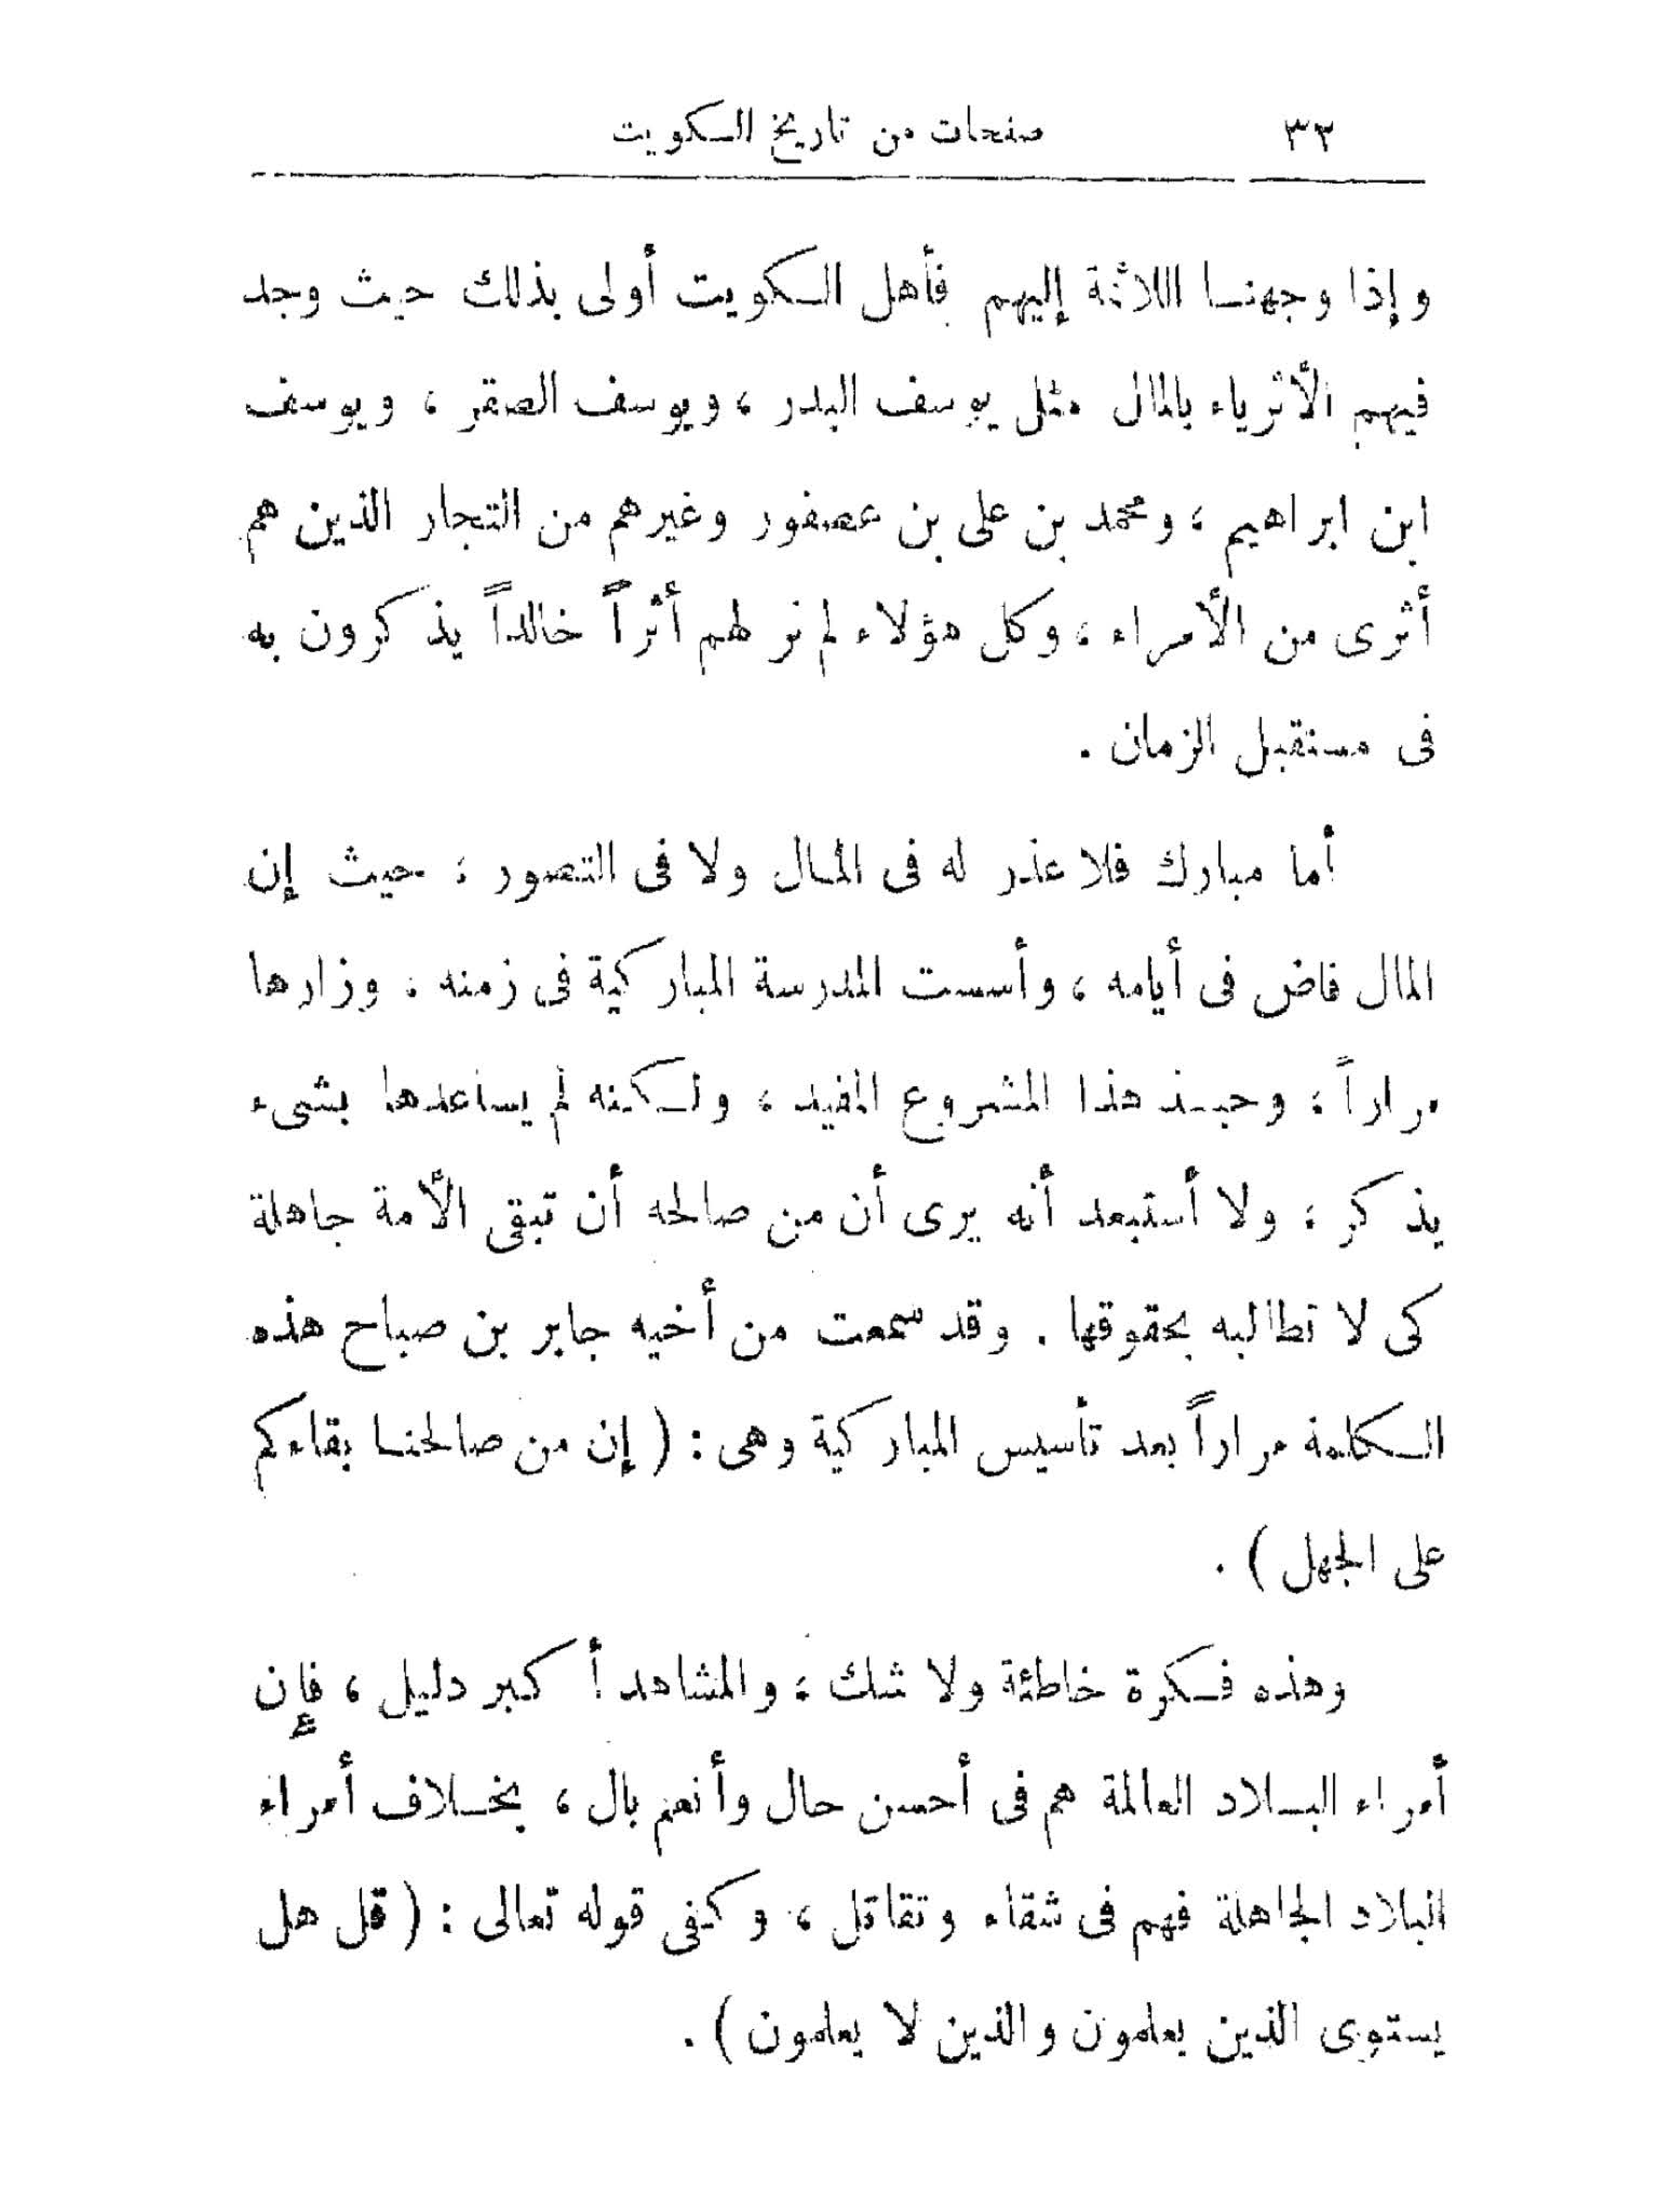 ٣٢ صفحات من تاريخ الكويت
وإذا وجهنا اللائمة إليهم فأهل الكويت أولى بذلك حيث وجد
فيهم الأثرياء بالمال مثل يوسف البدر ، ويوسف الصقر ، ويوسف
ابن ابراهيم ، ومحمد بن على بن عصفور وغيرهم من التجار الذين هم
أثرى من الأمراء ، وكل هؤلاء لم نر لهم أثراً خالداً يذكرون به
فى مستقبل الزمان .
أما مبارك فلا عذر له فى المال ولا فى التصور ، حيث إن
المال فاض فى أيامه ، وأسست المدرسة المباركية فى زمنه . وزارها
مراراً ، وحبذ هذا المشروع المفيد ، ولكنه لم يساعدها بشىء
يذكر ، ولا أستبعد أنه يرى أن من صالحه أن تبقى الأمة جاهلة
كى لا تطالبه بحقوقها . وقد سمعت من أخيه جابر بن صباح هذه
الكلمة مراراً بعد تأسيس المباركية وهى : ( إن من صالحنا بقاءكم
على الجهل ) .
وهذه فكرة خاطئة ولا شك ، والمشاهد أكبر دليل ، فإن
أمراء البلاد العالمة هم فى أحسن حال وأنعم بال ، بخلاف أمراء
البلاد الجاهلة فهم فى شقاء وتقاتل ، وكفى قوله تعالى : ( قل هل
يستوى الذين يعلمون والذين لا يعلمون ) .